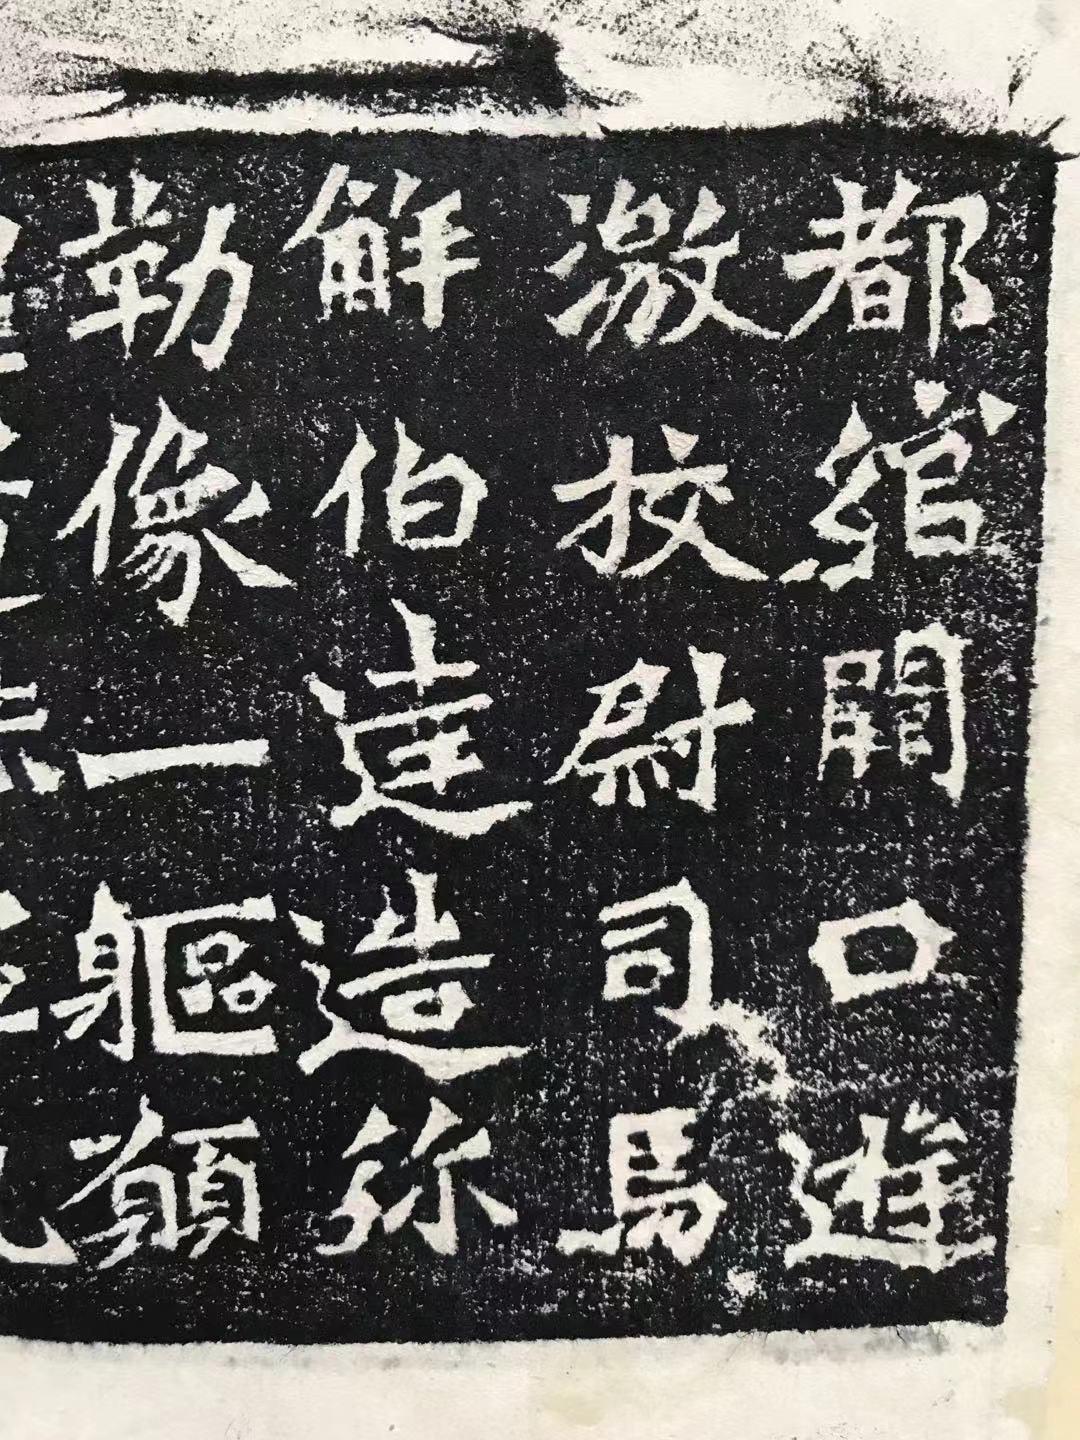 都綰闢口遊
激校尉司馬
解伯達造弥
勒像一軀願